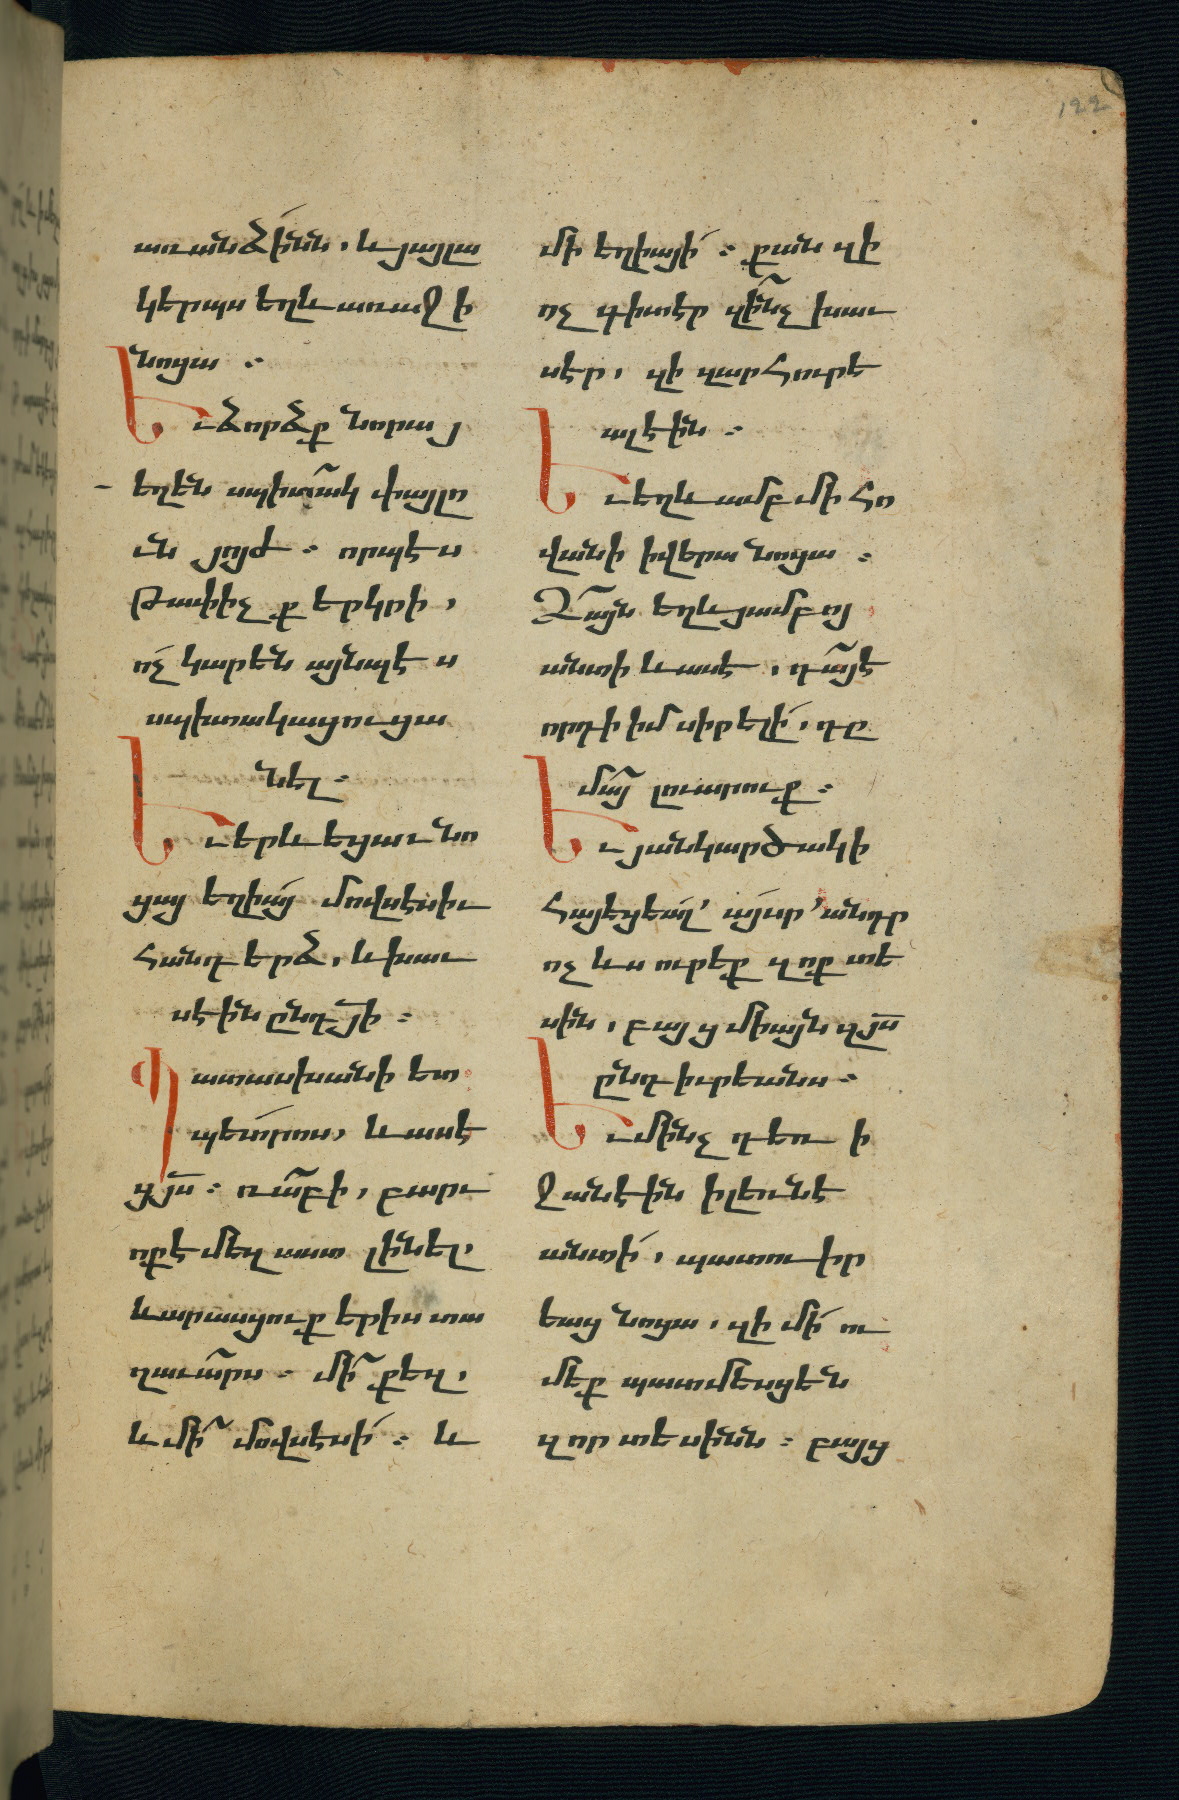 122
առանձինն, և յայլա
կերպս եղև առաջ ի
նոցա ։
Եւ ձորձք նորա յ
եղեն սպիտակ փայլո
ւն յոյժ ։ որպէս
թափիչք երկրի,
ոչ կարեն այնպէս
սպիտակացուցա
նել ։
Եւ երևեցաւ նո
ցայ եղիայ մովսէսիւ
հանդերձ, և խաւ
սէին ընդ յի ։
Պատասխանի ետ
պետրոս, և ասէ
ցյս ։ ռաբի, բարւ
ոք է մեզ աստ լինել,
և արասցուք երիս տա
ղաւարս ։ մի քեզ,
և մի մովսէսի ։ և
մի եղիայի ։ քանզի
ոչ գիտէր զինչ խաւ
սէր, զի զարհուրե
ալ էին ։
Եւ եղև ամբ մի հո
վանի ի վերա նոցա ։
Ձայն եղև յամբոյ
անտի և ասէ, դա է
որդի իմ սիրելի, դը
մայ լուարուք ։
Եւ յանկարծակի
հայեցեալ՚ այսր՚ անդր
ոչ ևս ուրեք զոք տե
սին, բայց միայն զյս
ընդ իւրեանս ։
Եւ մինչդեռ ի
ջանէին ի լեռնէ
անտի, պատուիր
եաց նոցա, զի մի ու
մեք պատմեսցեն
զոր տեսինն ։ բայց